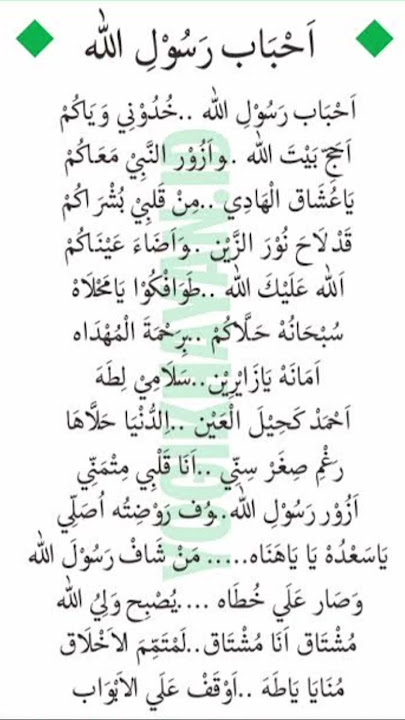 اَحْبَاب رَسُوْلِ الله
اَحْبَاب رَسُوْلِ الله ..خُدُوْنِي وَيَاكُمْ
اَحِجّ بَيْتَ الله ..وِاَزُوْر النَّبِيْ مَعَاكُمْ
يَاعُشَاق الْهَادِي ..مِنْ قَلْبِيْ بُشْرَاكُمْ
قَدْ لَاحَ نُوْرَ الزَّيْن ..وَاَضَاءَ عَيْنَاكُمْ
اَلله عَلَيْكَ الله ..طَوَافْكُوْا يَامَحْلَاهْ
سُبْحَانُهْ حَلَّاكُمْ ..بِرَحْمَةَ الْمُهْدَاه
اَمَانَهْ يَازَايْرِيْن..سَلَامِيْ لِطَهَ
اَحْمَدْ كَحِيْلَ الْعَيْن ..اِلدُّنْيَا حَلَّاهَا
رَغْمِ صِغَرْ سِنِّي ..اَنَا قَلْبِي مِتْمَنِّي
اَزُوْر رَسُوْلِ الله..وُف رَوْضِتُه اُصَلِّي
يَاسَعْدُهْ يَا يَاهَنَاه..... مَنْ شَافْ رَسُوْلَ الله
وَصَار عَلَي خُطَاه ....يُصْبِح وَلِيُ الله
مُشْتَاق اَنَا مُشْتَاق..لَمْتَمِّمَ الاَخْلَاق
مُنَايَا يَاطَهَ ..اَوْقَفْ عَلَي الاَبْوَاب
YOGIKHAYAN.ID